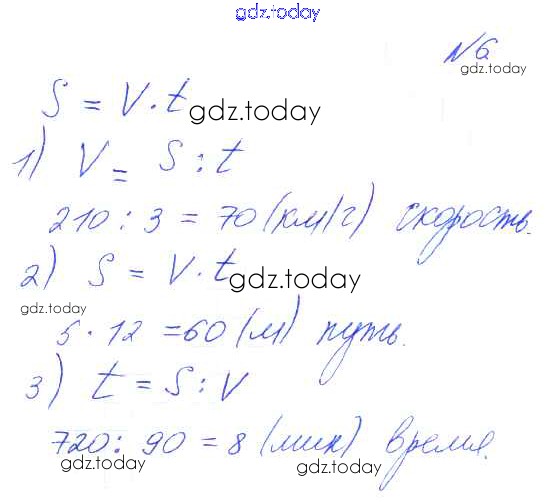 gdz.today
N 6
gdz.today
S = V · t
gdz.today
1) V = S : t
210 : 3 = 70 (км/ч) скорость.
2) S = V · t
gdz.today
gdz.today
5 · 12 = 60 (м) путь.
3) t = S : V
gdz.today
720 : 90 = 8 (мин) время.
gdz.today
gdz.today